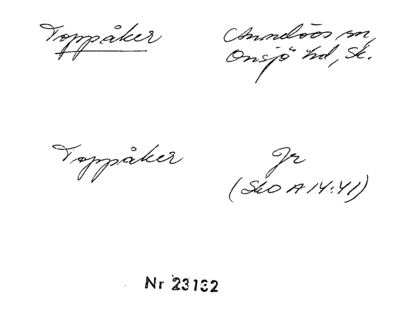 Toppåker Anndöos sn,
Onsjö hd, Sk.
Toppåker Jr
(SkO A 14:41)
Nr 23132